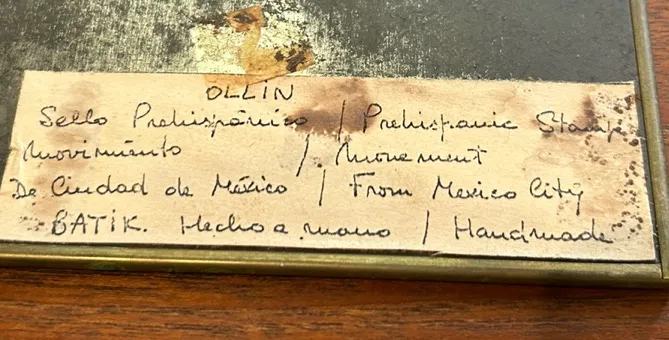 OLLIN
Sello Prehispánico / Prehispanic Stamp
Movimiento / Movement
De Ciudad de México / From Mexico City
BATIK. Hecho a mano / Handmade